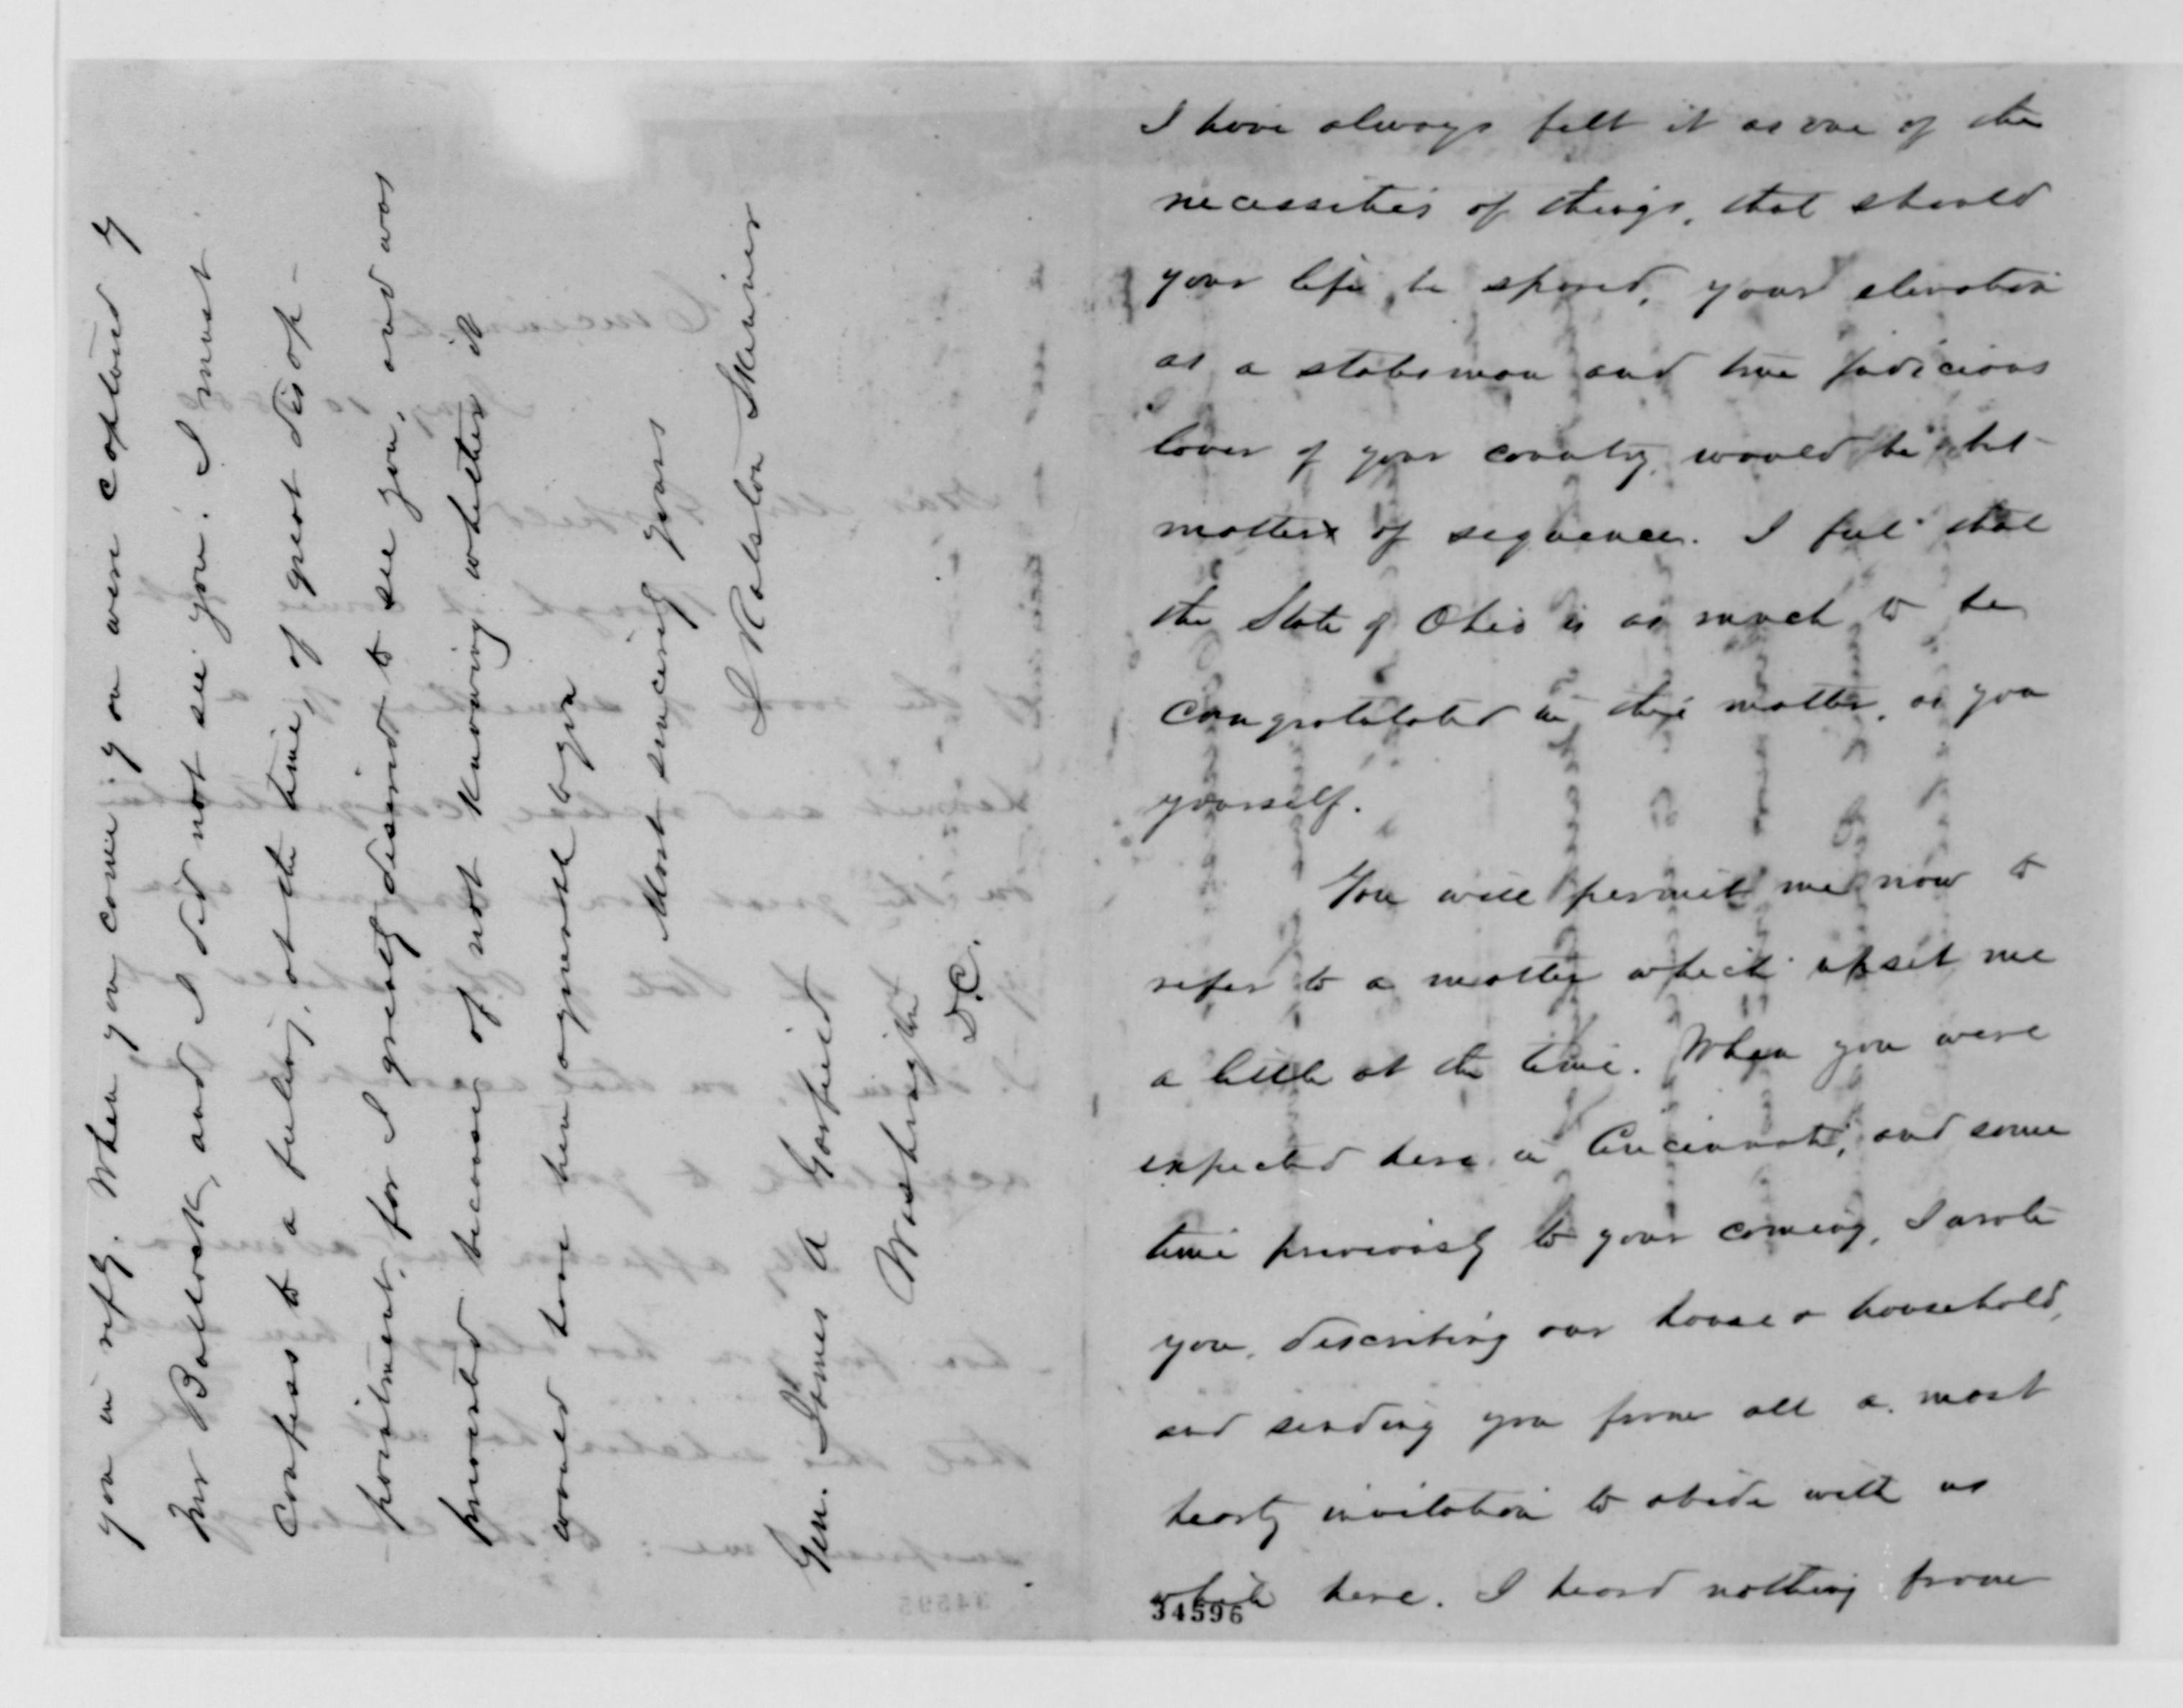 I have always felt it as one of the
necessities of things, that should
your life be spared, your elevation
as a statesman and true judicious
lover of your country, would be but
matter of sequence. I feel that
the State of Ohio is as much to be
congratulated in this matter, as you
yourself.
You will permit me now to
refer to a matter which upset me
a little at the time. When you were
expected here in Cincinnati, and some
time previously to your coming, I wrote
you, describing our house & household,
and sending you from all a most
hearty invitation to abide with us
while here. I heard nothing from
34596
you in reply. When you came you were captured by
Mr Bullock, and I did not see you. I must
confess to a feeling, at the time, of great disap-
pointment, for I greatly desired to see you, and was
prevented because of not knowing whether it
would have been agreeable to you
Most sincerely yours
J Ralston Skinner
Gen. James A Garfield
Washington
D.C.